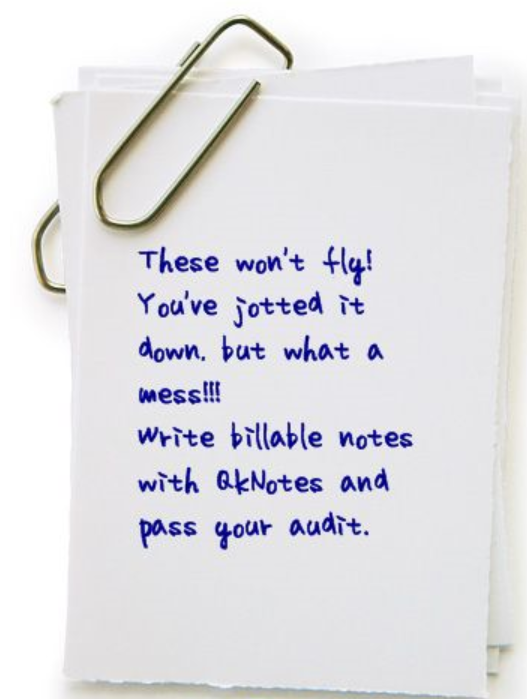 These won't fly!
You've jotted it
down. but what a
mess!!!
Write billable notes
with QkNotes and
pass your audit.